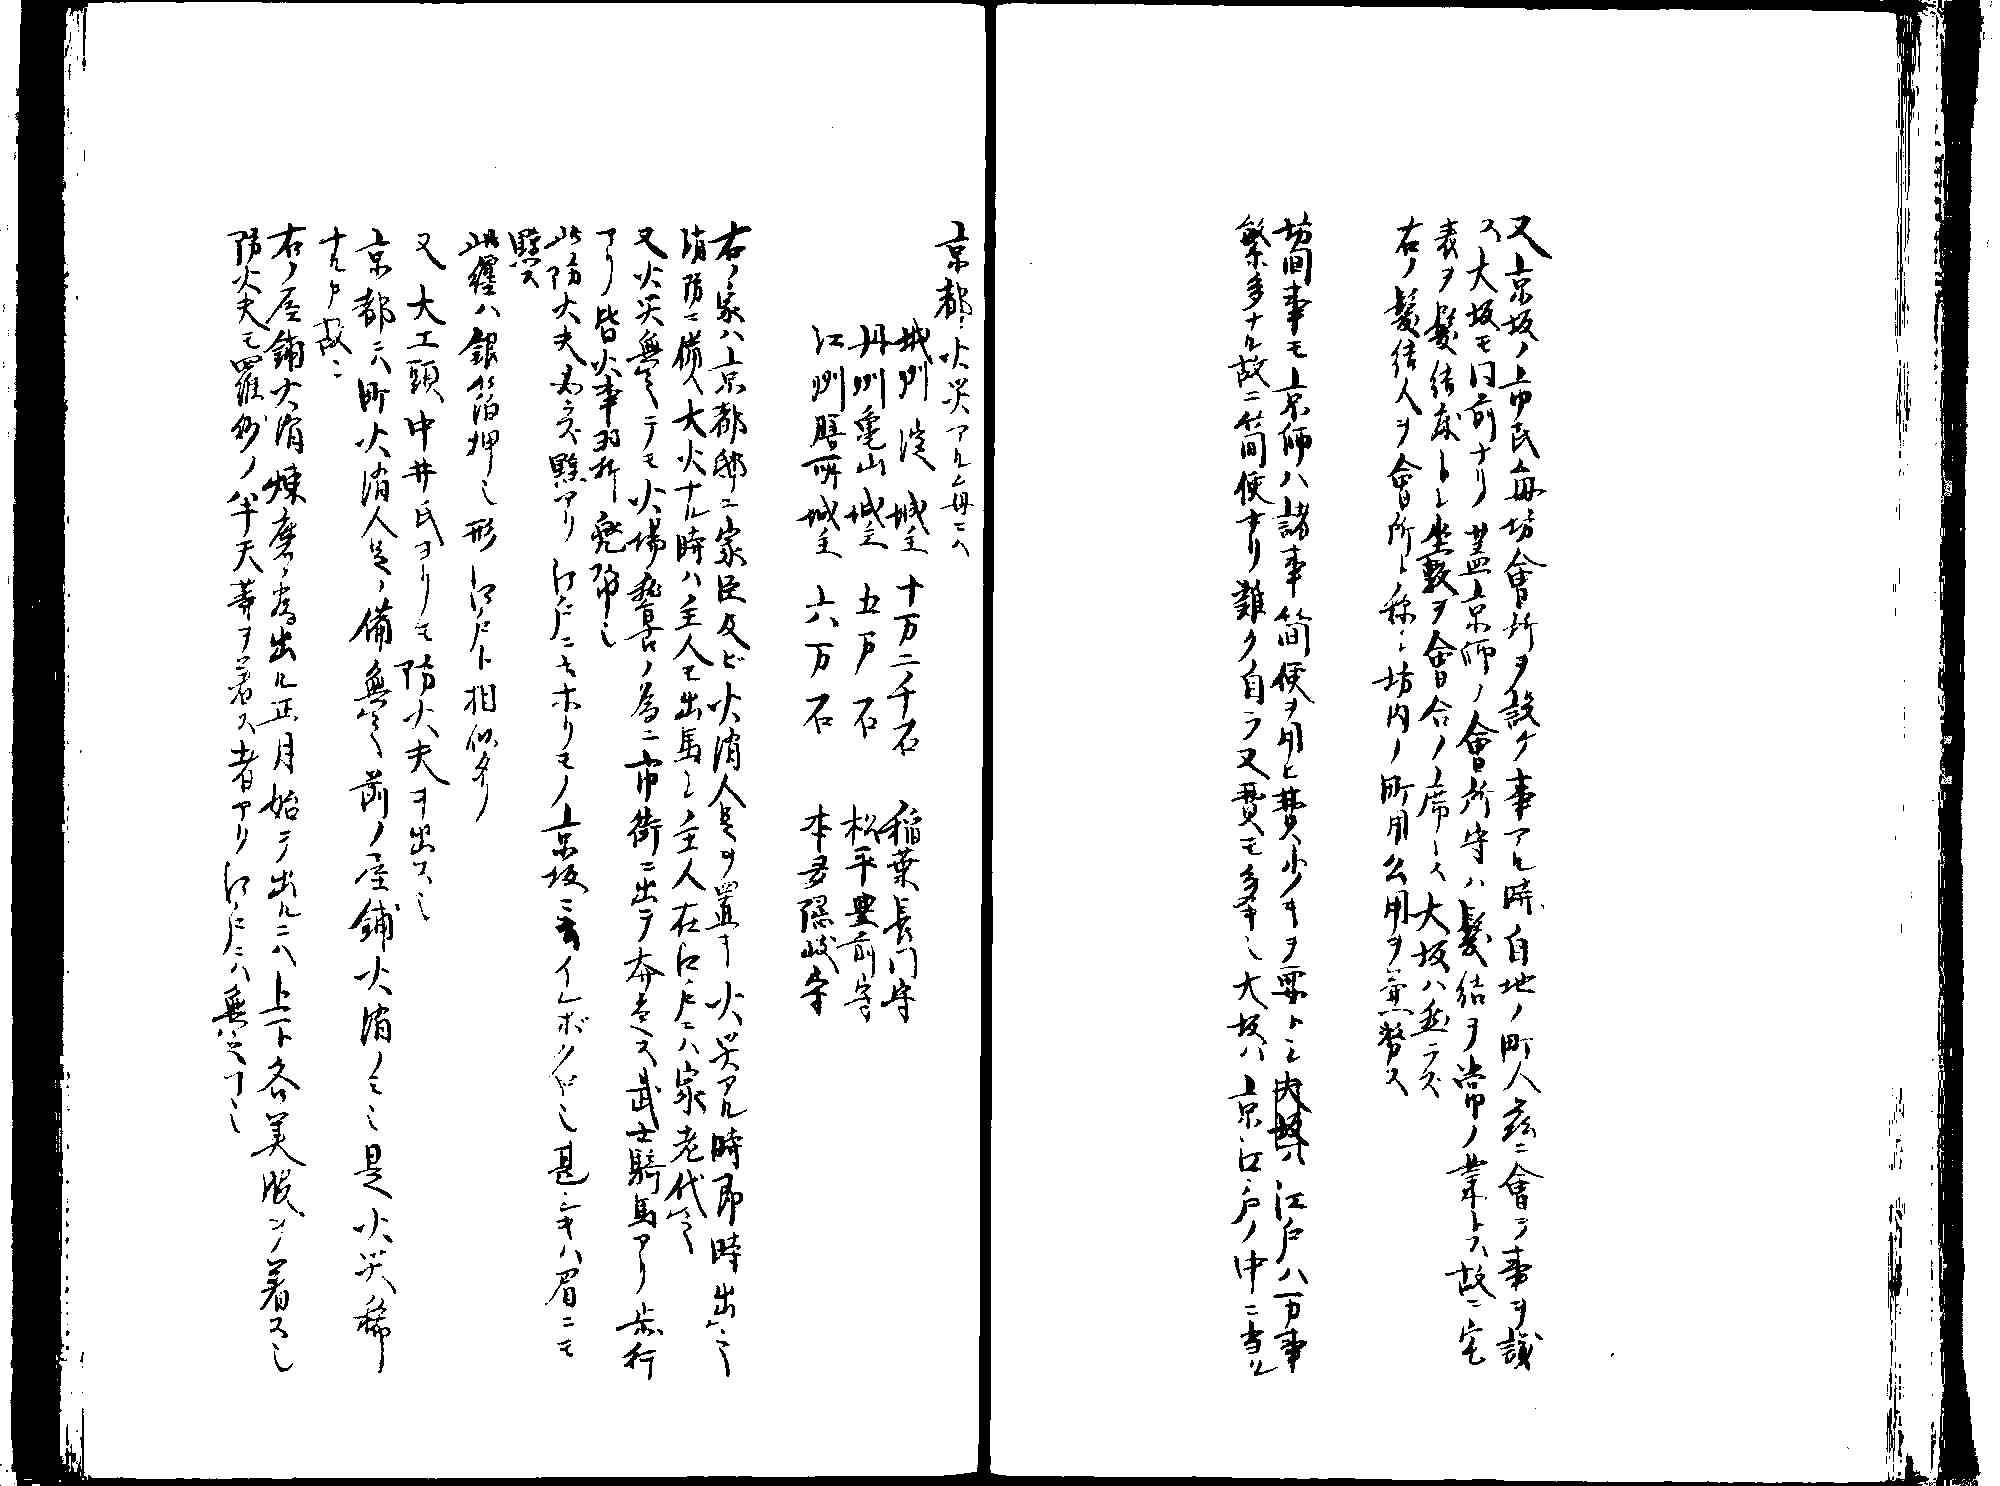 又京坂ノ市民毎坊會所ヲ設ケ事アル時自地ノ町人玆ニ會ラ事ヲ議
ス大坂モ同前ナリ蓋京師ノ會所守ハ髪結ヲ常ノ業トス故ニ宅
表ヲ髪結床トシ坐敷ヲ會合ノ席トス大坂ハ然ラズ
右ノ髪結人ヲ會所トノ称シ坊内ノ町用公用ヲ兼勤ス
坊間事モ京師ハ諸事簡便ヲ用ヒ費少ノキヲ要トシ大坂ハ江戸ハ万事
繁多ナル故ニ簡便ナリ難ク自ラ又費モ多キ也大坂ハ京江戸ノ中ニ当ル
京都ノ火災アル毎ニハ
城州淀城主 十万二千石 稲葉長門守
丹州亀山城主 五万石 松平豊前守
江州膳所城主 六万石 本多隠岐守
右ノ家ハ京都邸ニ家臣及ビ火消人足ヲ置キ火災アル時即時出テ
消防ニ備ヘ大火ナル時ハ主人モ出馬シノ主人在江戸ニハ家老代テ
又火災無之テモ火場警吿ノ為ニ市街ニ出テ奔走ス武士騎馬アリ歩行
アリ皆火事羽折兜帋也
此防火夫必ズ黥アリ江戸ニキホリモノ京坂ニテイレボクロト云甚シキハ眉ニモ
黥ス
此纒ハ銀箔押シ形江戸ト相似タリ
又大工頭中井氏ヨリモ防火夫ヲ出ス也
京都ニハ町火消人足ノ備無之前ノ屋鋪火消ノミ也是火災稀
ナルガ故ニ
右ノ屋鋪火消煉磨ノ為出ル正月始テ出ルニハ上下各美服ヲ着ス也
防火夫モ羅紗ノ半天等ヲ着ス者アリ江戸ニハ無之コト也